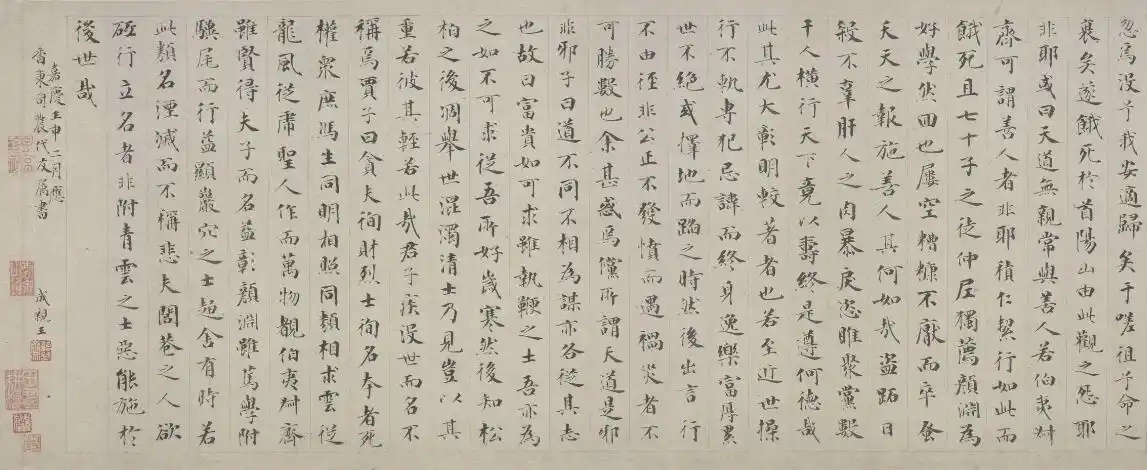 忽焉没兮我安適歸矣于嗟徂兮命之
衰矣遂餓死於首陽山由此觀之怨耶
非耶或曰天道無親常與善人若伯夷叔
齊可謂善人者非耶積仁絜行如此而
餓死且七十子之徒仲尼獨薦顏淵為
好學然回也屢空糟糠不厭而卒蚤
夭天之報施善人其何如哉盜跖日
殺不辜肝人之肉暴戾恣睢聚黨數
千人橫行天下竟以壽終是遵何德哉
此其尤大彰明較著者也若至近世操
行不軌專犯忌諱而終身逸樂富厚累
世不絕或擇地而蹈之時然後出言行
不由徑非公正不發憤而遇禍災者不
可勝數也余甚惑焉儻所謂天道是邪
非邪子曰道不同不相為謀亦各從其志
也故曰富貴如可求雖執鞭之士吾亦為
之如不可求從吾所好歲寒然後知松
柏之後凋舉世混濁清士乃見豈以其
重若彼其輕若此哉君子疾没世而名不
稱焉賈子曰貪夫徇財烈士徇名夸者死
權衆庶馮生同明相照同類相求雲從
龍風從虎聖人作而萬物覩伯夷叔齊
雖賢得夫子而名益彰顏淵雖篤學附
驥尾而行益顯巖穴之士趨舍有時若
此類名湮滅而不稱悲夫閭巷之人欲
砥行立名者非附青雲之士惡能施於
後世哉
嘉慶壬申二月應
香東司農代友属書
成親王